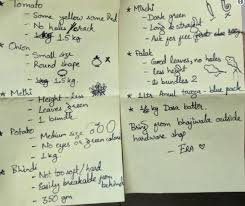 * Tomato
- Some yellow some Red
- No holes / crack
- 1.5 kg
* Onion
- Small size
- Round shape
- 1.5 kg
* Methi
- Height - less
- Leaves green
- 1 bundle
* Potato
- Medium size
- No eyes or green colour
- 1 kg
* Bhindi
- Not too soft / hard
- Easily breakable from behind
- 350 gm
* Mirchi
- Dark green
- Long & straight
- Ask for free
* Palak
- Good leaves, no holes
- less height
- 2 bundles
* 1 ltr Amul blue pack
* 1/2 kg Dosa batter
Bring from bhajiwala outside
hardware shop